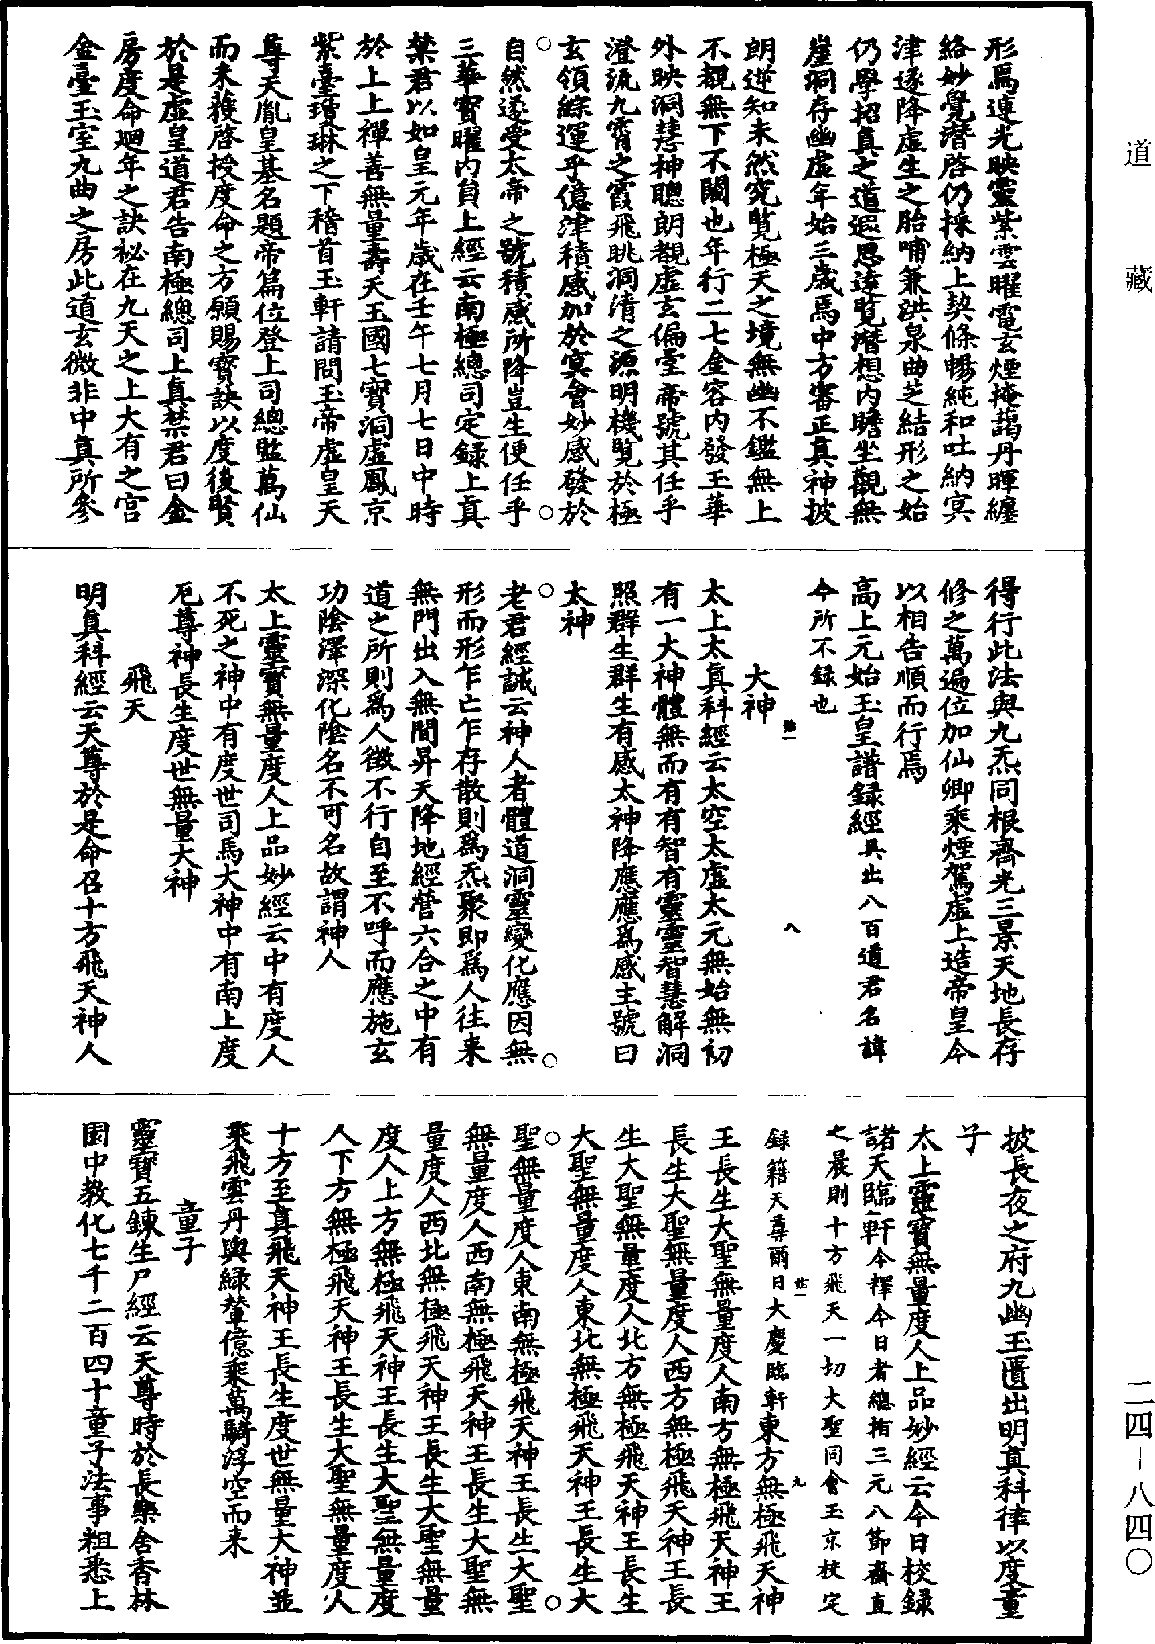 形焉連光映靈紫雲曜電玄煙掩藹丹暉纏
絡妙覺潛啓仍採納上契條暢純和吐納冥
津遂降虛生之胎哺兼洪泉曲芝結形之始
仍學招真之道遐思遠覽潛想內瞻坐觀無
崖洞存幽虛年始三歲焉中方審正真神披
朗逆知未然究覽極天之境無幽不鑑無上
不覩無下不闚也年行二七金容內發玉華
外映洞慧神聰朗觀虛玄偏𡎺帝號其任乎
澄流九霄之霞飛眺洞清之源明機覽於極
玄領綜運乎億津積感加於冥會妙感發於
自然遂受太帝之號積感所降豈生便任乎
三華寶曜內負上經云南極總司定錄上真
禁君以如皇元年歲在壬午七月七日中時
於上上禪善無量壽天玉國七寶洞虛鳳京
紫臺瓊琳之下稽首玉軒請問玉帝虛皇天
尊天胤皇基名題帝篇位登上司總監萬仙
而未獲啓授度命之方願賜寶訣以度後賢
於是虛皇道君告南極總司上真禁君曰金
房度命迴年之訣秘在九天之上大有之宮
金臺玉室九曲之房此道玄微非中真所參
得行此法與九炁同根齊光三景天地長存
修之萬遍位加仙卿乘煙駕虛上造帝皇今
以相告順而行焉
高上元始玉皇譜錄經具出八百道君名諱
今所不錄也
八
大神
太上太真科經云太空太虛太元無始無初
有一大神體無而有有智有靈靈智慧解洞
照群生群生有感太神降應應為感主號曰
太神
老君經誡云神人者體道洞靈變化應因無
形而形乍亡乍存散則為炁聚即為人往來
無門出入無間昇天降地經營六合之中有
道之所則為人徵不行自至不呼而應施玄
功陰澤深化陰名不可名故謂神人
太上靈寶無量度人上品妙經云中有度人
不死之神中有度世司馬大神中有南上度
厄尊神長生度世無量大神
飛天
明真科經云天尊於是命召十方飛天神人
披長夜之府九幽玉匱出明真科律以度童
子
太上靈寶無量度人上品妙經云今日校錄
諸天臨軒今釋今日者總指三元八節齋直
之晨則十方飛天一切大聖同會玉京校定
錄籍天尊爾日大慶臨軒東方無極飛天神
九
王長生大聖無量度人南方無極飛天神王
長生大聖無量度人西方無極飛天神王長
生大聖無量度人北方無極飛天神王長生
大聖無量度人東北無極飛天神王長生大
聖無量度人東南無極飛天神王長生大聖
無量度人西南無極飛天神王長生大聖無
量度人西北無極飛天神王長生大聖無量
度人上方無極飛天神王長生大聖無量度
人下方無極飛天神王長生大聖無量度人
十方至真飛天神王長生度世無量大神並
乘飛雲丹輿綠輦億乘萬騎浮空而來
童子
靈寶五鍊生尸經云天尊時於長樂舍香林
園中教化七千二百四十童子法事粗悉上
道藏
二四—八四〇